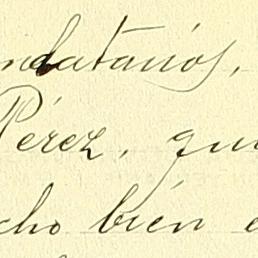 ndatarios,
Pérez, qu
cho bién e